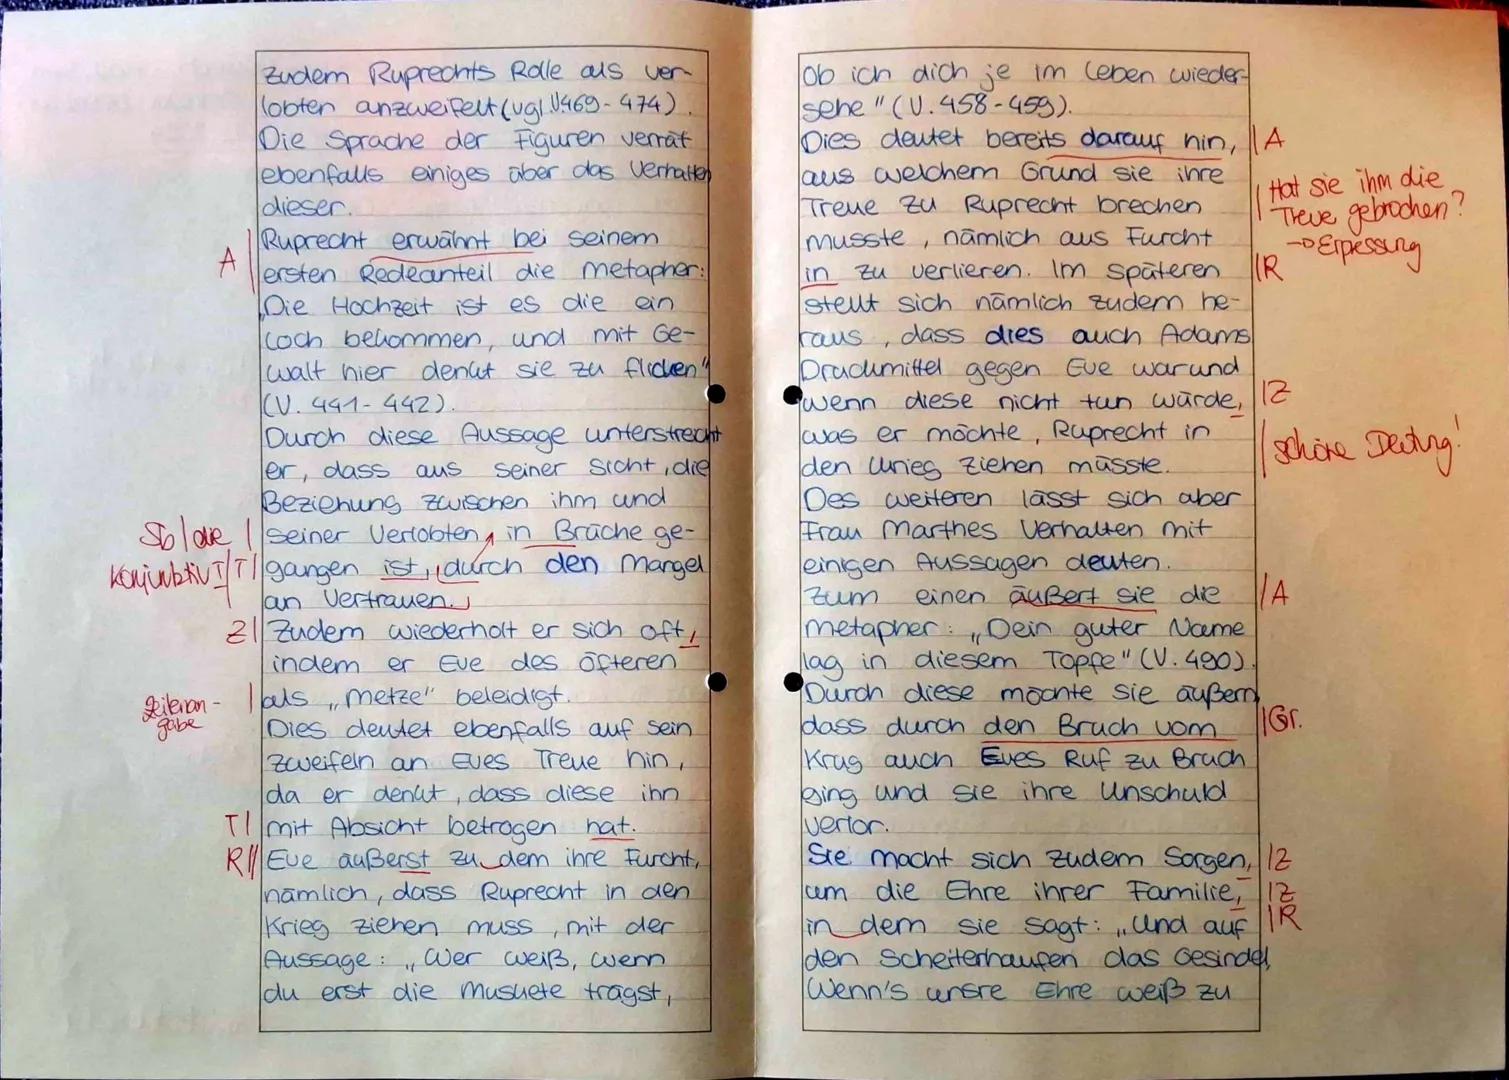 zudem Ruprechts Rolle als ver-
lobten anzweifelt (vgl. V.469-474).
Die Sprache der Figuren verrät
ebenfalls einiges über das Verhalten
dieser.
Ruprecht erwähnt bei seinem
A
ersten Redeanteil die Metapher:
„Die Hochzeit ist es die ein
Loch bekommen, und mit Ge-
walt hier denkt sie zu flicken"
(V. 441-442).
Durch diese Aussage unterstreicht
er, dass aus seiner Sicht, die
Beziehung zwischen ihm und
Sb | die
seiner Verlobten, in Brüche ge-
Konjunktiv I / T
gangen ist, durch den Mangel
an Vertrauen.
Z
Zudem wiederholt er sich oft,
indem er Eve des öfteren
Zeilenan-
gabe
als „Metze" beleidigt.
Dies deutet ebenfalls auf sein
zweifeln an Eves Treue hin,
da er denkt, dass diese ihn
T
mit Absicht betrogen hat.
R
Eve äußerst zu dem ihre Furcht,
nämlich, dass Ruprecht in den
Krieg ziehen muss, mit der
Aussage: „Wer weiß, wenn
du erst die Muskete trägst,
Ob ich dich je im Leben wieder-
sehe" (V. 458-459).
Dies deutet bereits darauf hin,
A
aus welchem Grund sie ihre
Hat sie ihm die
Treue zu Ruprecht brechen
Treue gebrochen?
musste, nämlich aus Furcht
→ Erpessung
in zu verlieren. Im späteren
R
stellt sich nämlich zudem he-
raus, dass dies auch Adams
Druckmittel gegen Eve war und
wenn diese nicht tun würde,
Z
was er möchte, Ruprecht in
schöne Deutung!
den Krieg ziehen müsste.
Des weiteren lässt sich aber
Frau Marthes Verhalten mit
einigen Aussagen deuten.
Zum einen äußert sie die
A
Metapher: „Dein guter Name
lag in diesem Topfe" (V. 490).
Durch diese möchte sie äußern
dass durch den Bruch vom
Gr.
Krug auch Eves Ruf zu Bruch
ging und sie ihre Unschuld
verlor.
Sie macht sich zudem Sorgen,
Z
um die Ehre ihrer Familie,
Z
in dem sie sagt: „Und auf
R
den Scheiterhaufen das Gesindel,
Wenn's unsre Ehre weiß zu